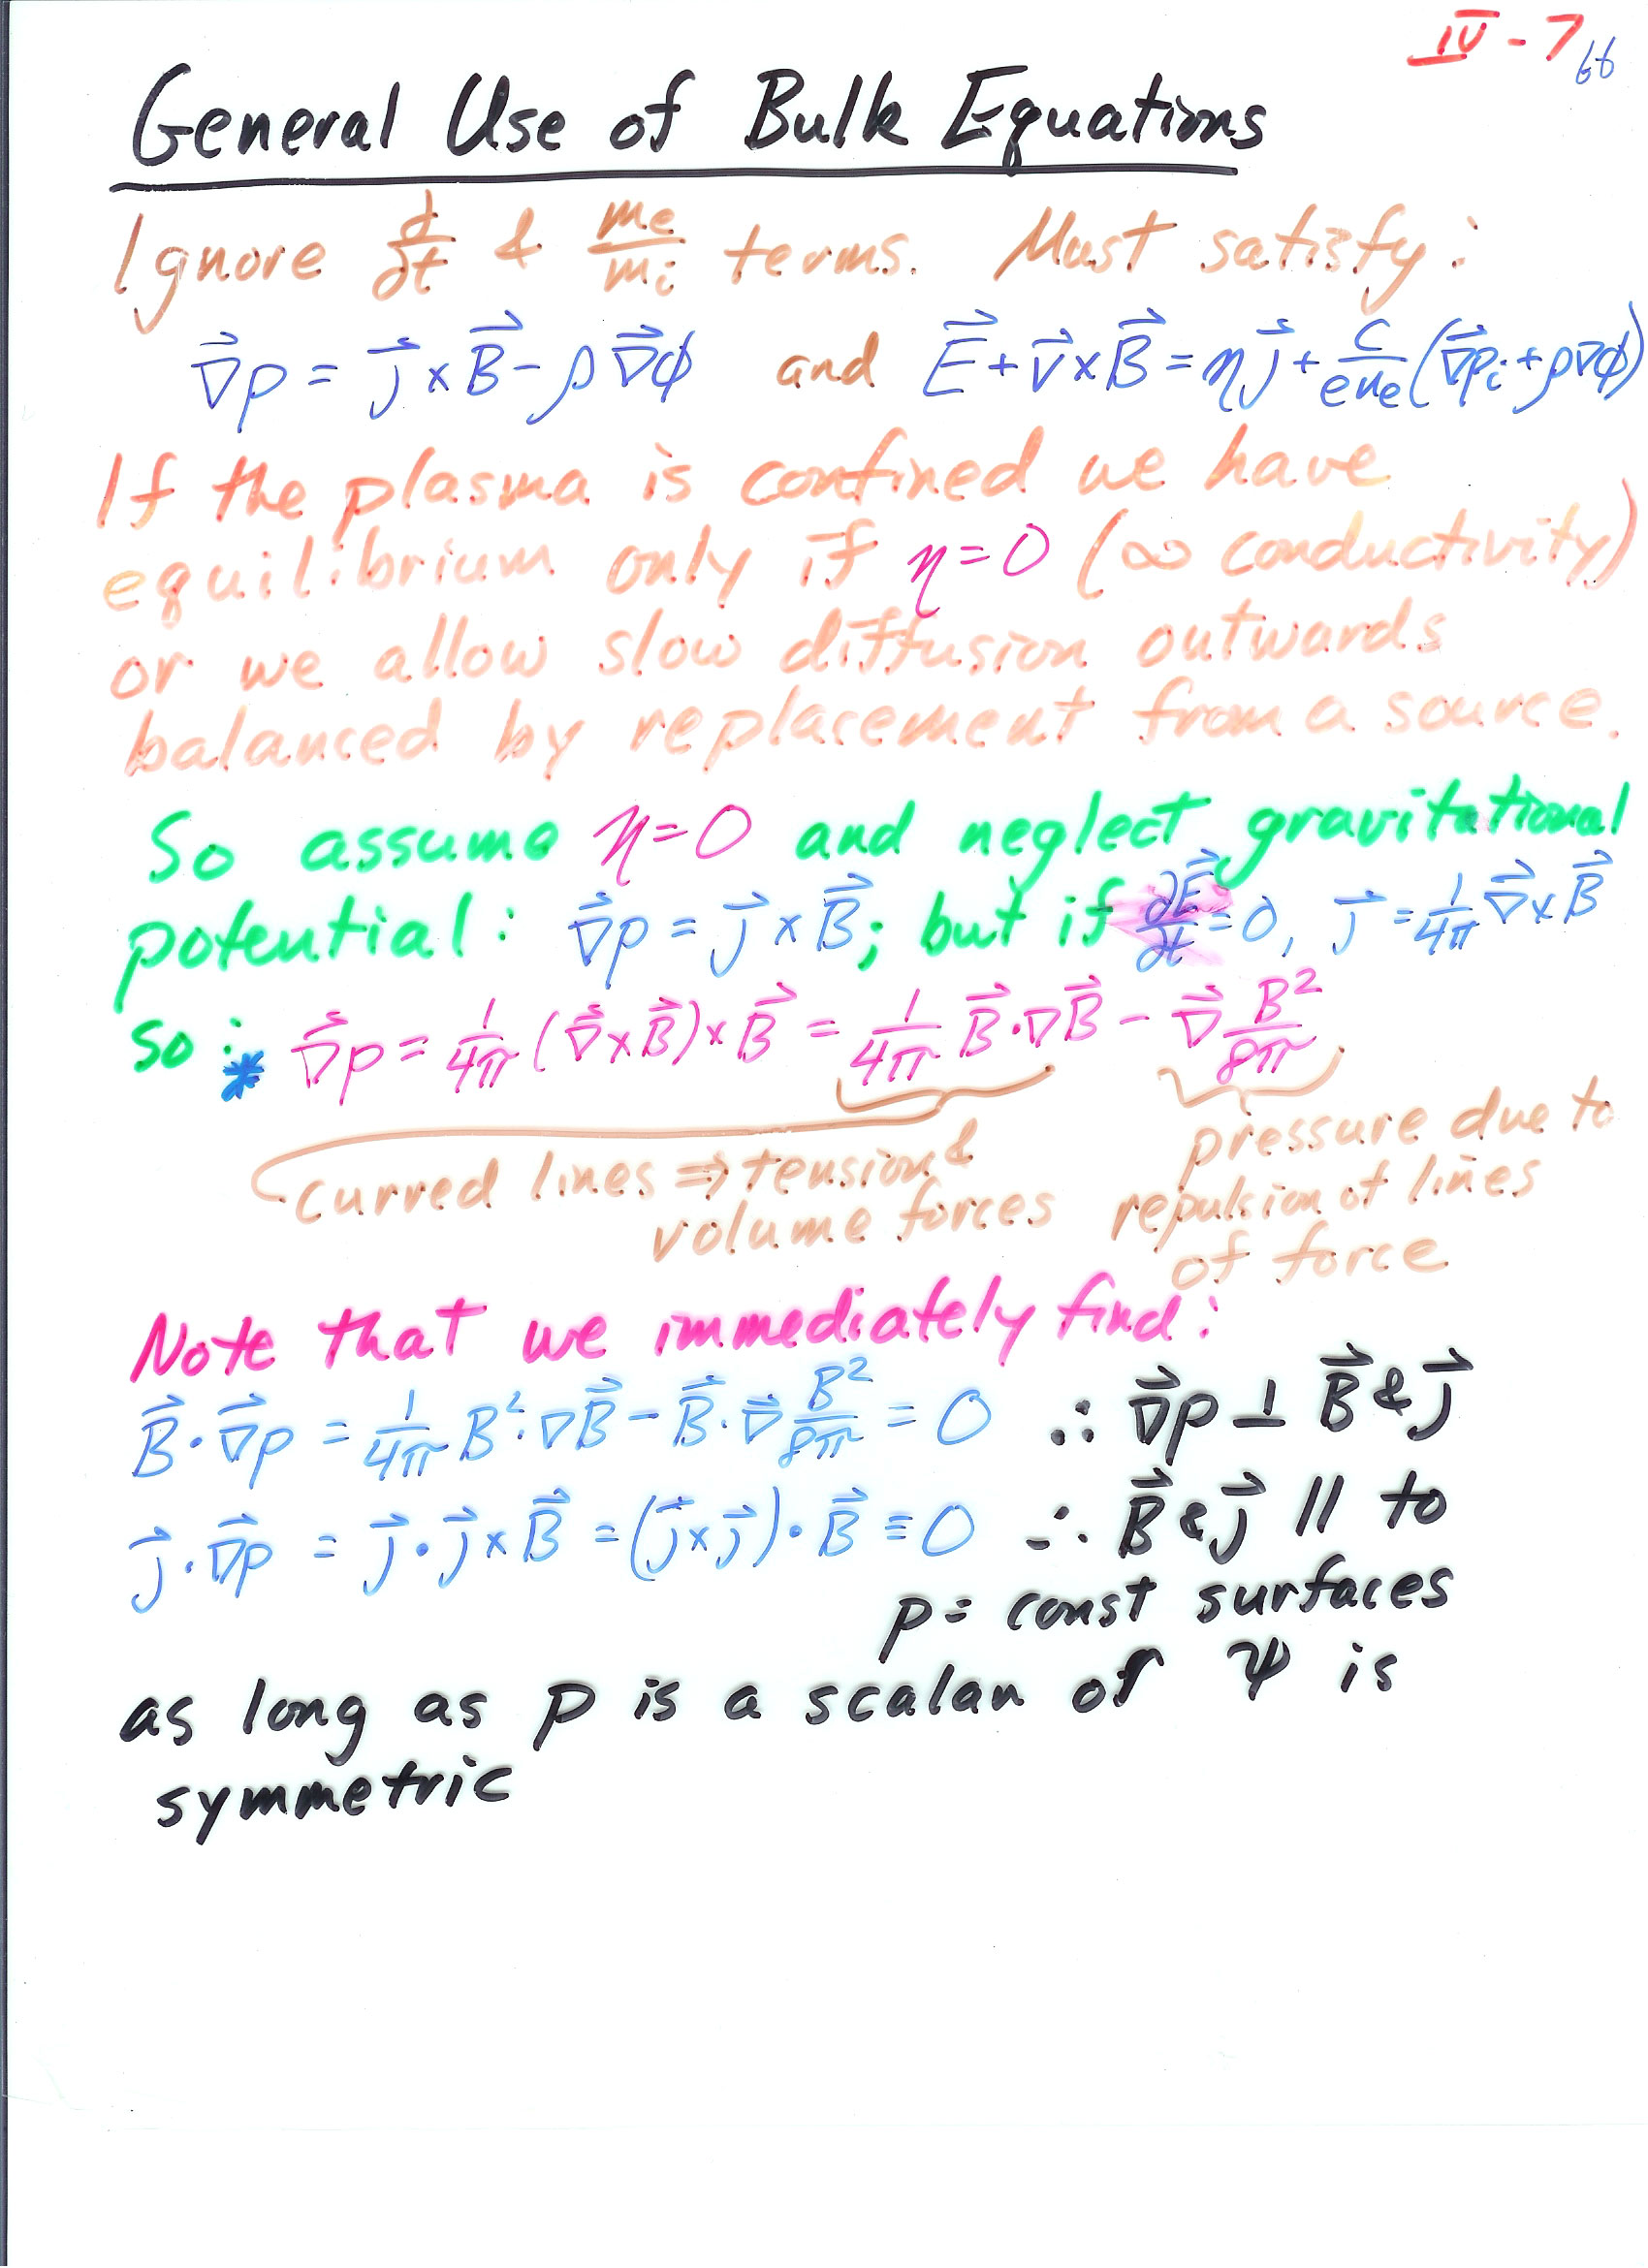 IV - 7
66
General Use of Bulk Equations
Ignore ∂/∂t & me/mi terms. Must satisfy:
∇⃗p = j⃗ × B⃗ - ρ∇⃗ϕ and E⃗ + v⃗ × B⃗ = ηj⃗ + c/ene (∇⃗pi + ρ∇ϕ)
If the plasma is confined we have
equilibrium only if η = 0 (∞ conductivity)
or we allow slow diffusion outwards
balanced by replacement from a source.
So assume η = 0 and neglect gravitational
potential: ∇⃗p = j⃗ × B⃗; but if ∂E⃗/∂t = 0, j⃗ = 1/4π ∇⃗ × B⃗
so: * ∇⃗p = 1/4π (∇⃗ × B⃗) × B⃗ = 1/4π B⃗·∇B⃗ - ∇⃗ B²/8π
curved lines ⇒ tension &
volume forces
pressure due to
repulsion of lines
of force
Note that we immediately find:
B⃗·∇⃗p = 1/4π B²:∇B⃗ - B⃗·∇⃗ B²/8π = 0 ∴ ∇⃗p ⊥ B⃗ & j⃗
j⃗·∇⃗p = j⃗·j⃗ × B⃗ = (j⃗ × j⃗)·B⃗ ≡ 0 ∴ B⃗ & j⃗ // to
p = const surfaces
as long as p is a scalar or ψ is
symmetric